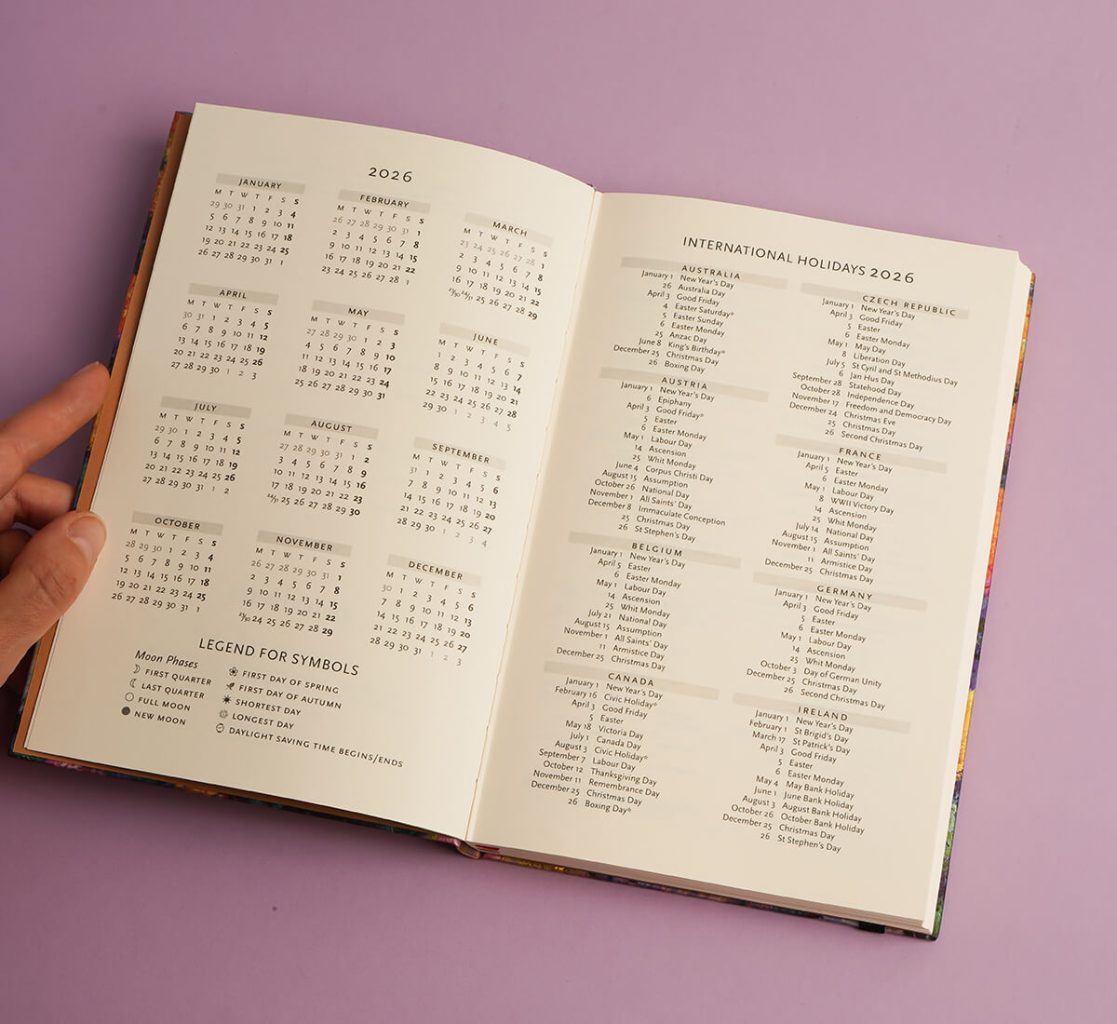 2026
JANUARY
M T W T F S S
29 30 31 1 2 3 4
5 6 7 8 9 10 11
12 13 14 15 16 17 18
19 20 21 22 23 24 25
26 27 28 29 30 31 1
FEBRUARY
M T W T F S S
26 27 28 29 30 31 1
2 3 4 5 6 7 8
9 10 11 12 13 14 15
16 17 18 19 20 21 22
23 24 25 26 27 28 1
MARCH
M T W T F S S
23 24 25 26 27 28 1
2 3 4 5 6 7 8
9 10 11 12 13 14 15
16 17 18 19 20 21 22
23/30 24/31 25 26 27 28 29
APRIL
M T W T F S S
30 31 1 2 3 4 5
6 7 8 9 10 11 12
13 14 15 16 17 18 19
20 21 22 23 24 25 26
27 28 29 30 1 2 3
MAY
M T W T F S S
27 28 29 30 1 2 3
4 5 6 7 8 9 10
11 12 13 14 15 16 17
18 19 20 21 22 23 24
25 26 27 28 29 30 31
JUNE
M T W T F S S
1 2 3 4 5 6 7
8 9 10 11 12 13 14
15 16 17 18 19 20 21
22 23 24 25 26 27 28
29 30 1 2 3 4 5
JULY
M T W T F S S
29 30 1 2 3 4 5
6 7 8 9 10 11 12
13 14 15 16 17 18 19
20 21 22 23 24 25 26
27 28 29 30 31 1 2
AUGUST
M T W T F S S
27 28 29 30 31 1 2
3 4 5 6 7 8 9
10 11 12 13 14 15 16
17 18 19 20 21 22 23
24/31 25 26 27 28 29 30
SEPTEMBER
M T W T F S S
31 1 2 3 4 5 6
7 8 9 10 11 12 13
14 15 16 17 18 19 20
21 22 23 24 25 26 27
28 29 30 1 2 3 4
OCTOBER
M T W T F S S
28 29 30 1 2 3 4
5 6 7 8 9 10 11
12 13 14 15 16 17 18
19 20 21 22 23 24 25
26 27 28 29 30 31 1
NOVEMBER
M T W T F S S
26 27 28 29 30 31 1
2 3 4 5 6 7 8
9 10 11 12 13 14 15
16 17 18 19 20 21 22
23/30 24 25 26 27 28 29
DECEMBER
M T W T F S S
30 1 2 3 4 5 6
7 8 9 10 11 12 13
14 15 16 17 18 19 20
21 22 23 24 25 26 27
28 29 30 31 1 2 3
LEGEND FOR SYMBOLS
Moon Phases
FIRST QUARTER
LAST QUARTER
FULL MOON
NEW MOON
FIRST DAY OF SPRING
FIRST DAY OF AUTUMN
SHORTEST DAY
LONGEST DAY
DAYLIGHT SAVING TIME BEGINS/ENDS
INTERNATIONAL HOLIDAYS 2026
AUSTRALIA
January 1 New Year's Day
26 Australia Day
April 3 Good Friday
4 Easter Saturday*
5 Easter Sunday
6 Easter Monday
25 Anzac Day
June 8 King's Birthday*
December 25 Christmas Day
26 Boxing Day
AUSTRIA
January 1 New Year's Day
6 Epiphany
April 3 Good Friday*
5 Easter
6 Easter Monday
May 1 Labour Day
14 Ascension
25 Whit Monday
June 4 Corpus Christi Day
August 15 Assumption
October 26 National Day
November 1 All Saints' Day
December 8 Immaculate Conception
25 Christmas Day
26 St Stephen's Day
BELGIUM
January 1 New Year's Day
April 5 Easter
6 Easter Monday
May 1 Labour Day
14 Ascension
25 Whit Monday
July 21 National Day
August 15 Assumption
November 1 All Saints' Day
11 Armistice Day
December 25 Christmas Day
CANADA
January 1 New Year's Day
February 16 Civic Holiday*
April 3 Good Friday
5 Easter
May 18 Victoria Day
July 1 Canada Day
August 3 Civic Holiday*
September 7 Labour Day
October 12 Thanksgiving Day
November 11 Remembrance Day
December 25 Christmas Day
26 Boxing Day*
CZECH REPUBLIC
January 1 New Year's Day
April 3 Good Friday
5 Easter
6 Easter Monday
May 1 May Day
8 Liberation Day
July 5 St Cyril and St Methodius Day
6 Jan Hus Day
September 28 Statehood Day
October 28 Independence Day
November 17 Freedom and Democracy Day
December 24 Christmas Eve
25 Christmas Day
26 Second Christmas Day
FRANCE
January 1 New Year's Day
April 5 Easter
6 Easter Monday
May 1 Labour Day
8 WWII Victory Day
14 Ascension
25 Whit Monday
July 14 National Day
August 15 Assumption
November 1 All Saints' Day
11 Armistice Day
December 25 Christmas Day
GERMANY
January 1 New Year's Day
April 3 Good Friday
5 Easter
6 Easter Monday
May 1 Labour Day
14 Ascension
25 Whit Monday
October 3 Day of German Unity
December 25 Christmas Day
26 Second Christmas Day
IRELAND
January 1 New Year's Day
February 1 St Brigid's Day
March 17 St Patrick's Day
April 3 Good Friday
5 Easter
6 Easter Monday
May 4 May Bank Holiday
June 1 June Bank Holiday
August 3 August Bank Holiday
October 26 October Bank Holiday
December 25 Christmas Day
26 St Stephen's Day